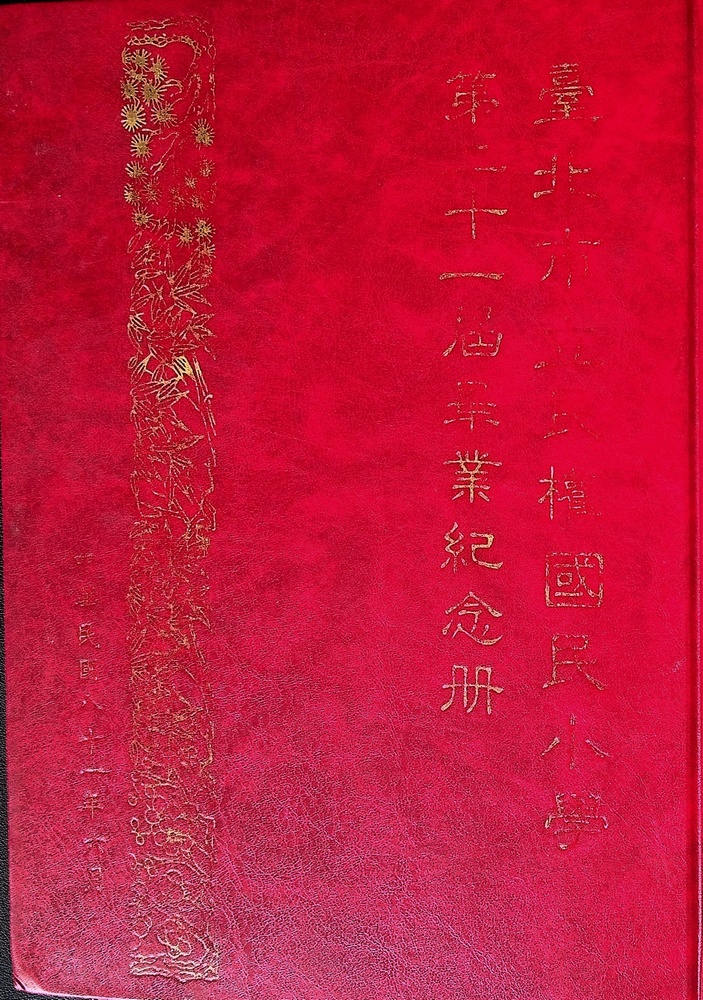 臺北市立民權國民小學
第二十一届畢業紀念册
中華民國八十一年六月